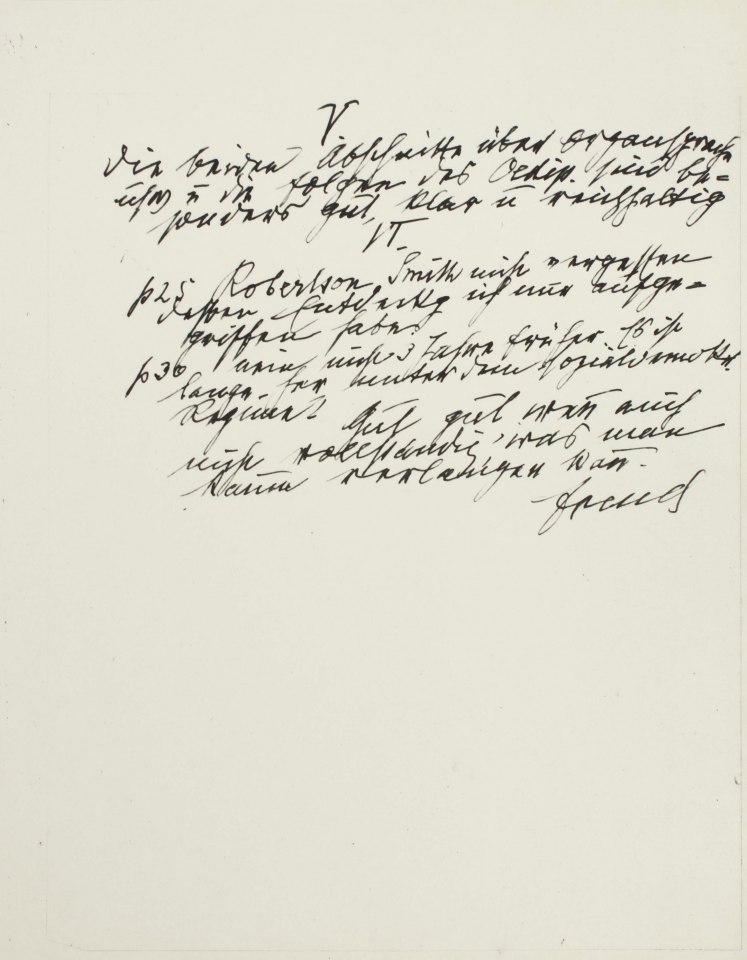 V
Die beiden Abschnitte über Organsprache
usw u die Folgen des Oedip. sind be=
sonders gut, klar u reichhaltig
VI.
p25 Robertson Smith nicht vergessen
dessen Entdeckg ich nur aufge=
griffen habe
p30 nein nicht 3 Jahre früher Es ist
lange her unter dem sozialdemokr.
Regime! Gut gut wenn auch
nicht vollständig, was man
kaum verlangen kann.
Freud